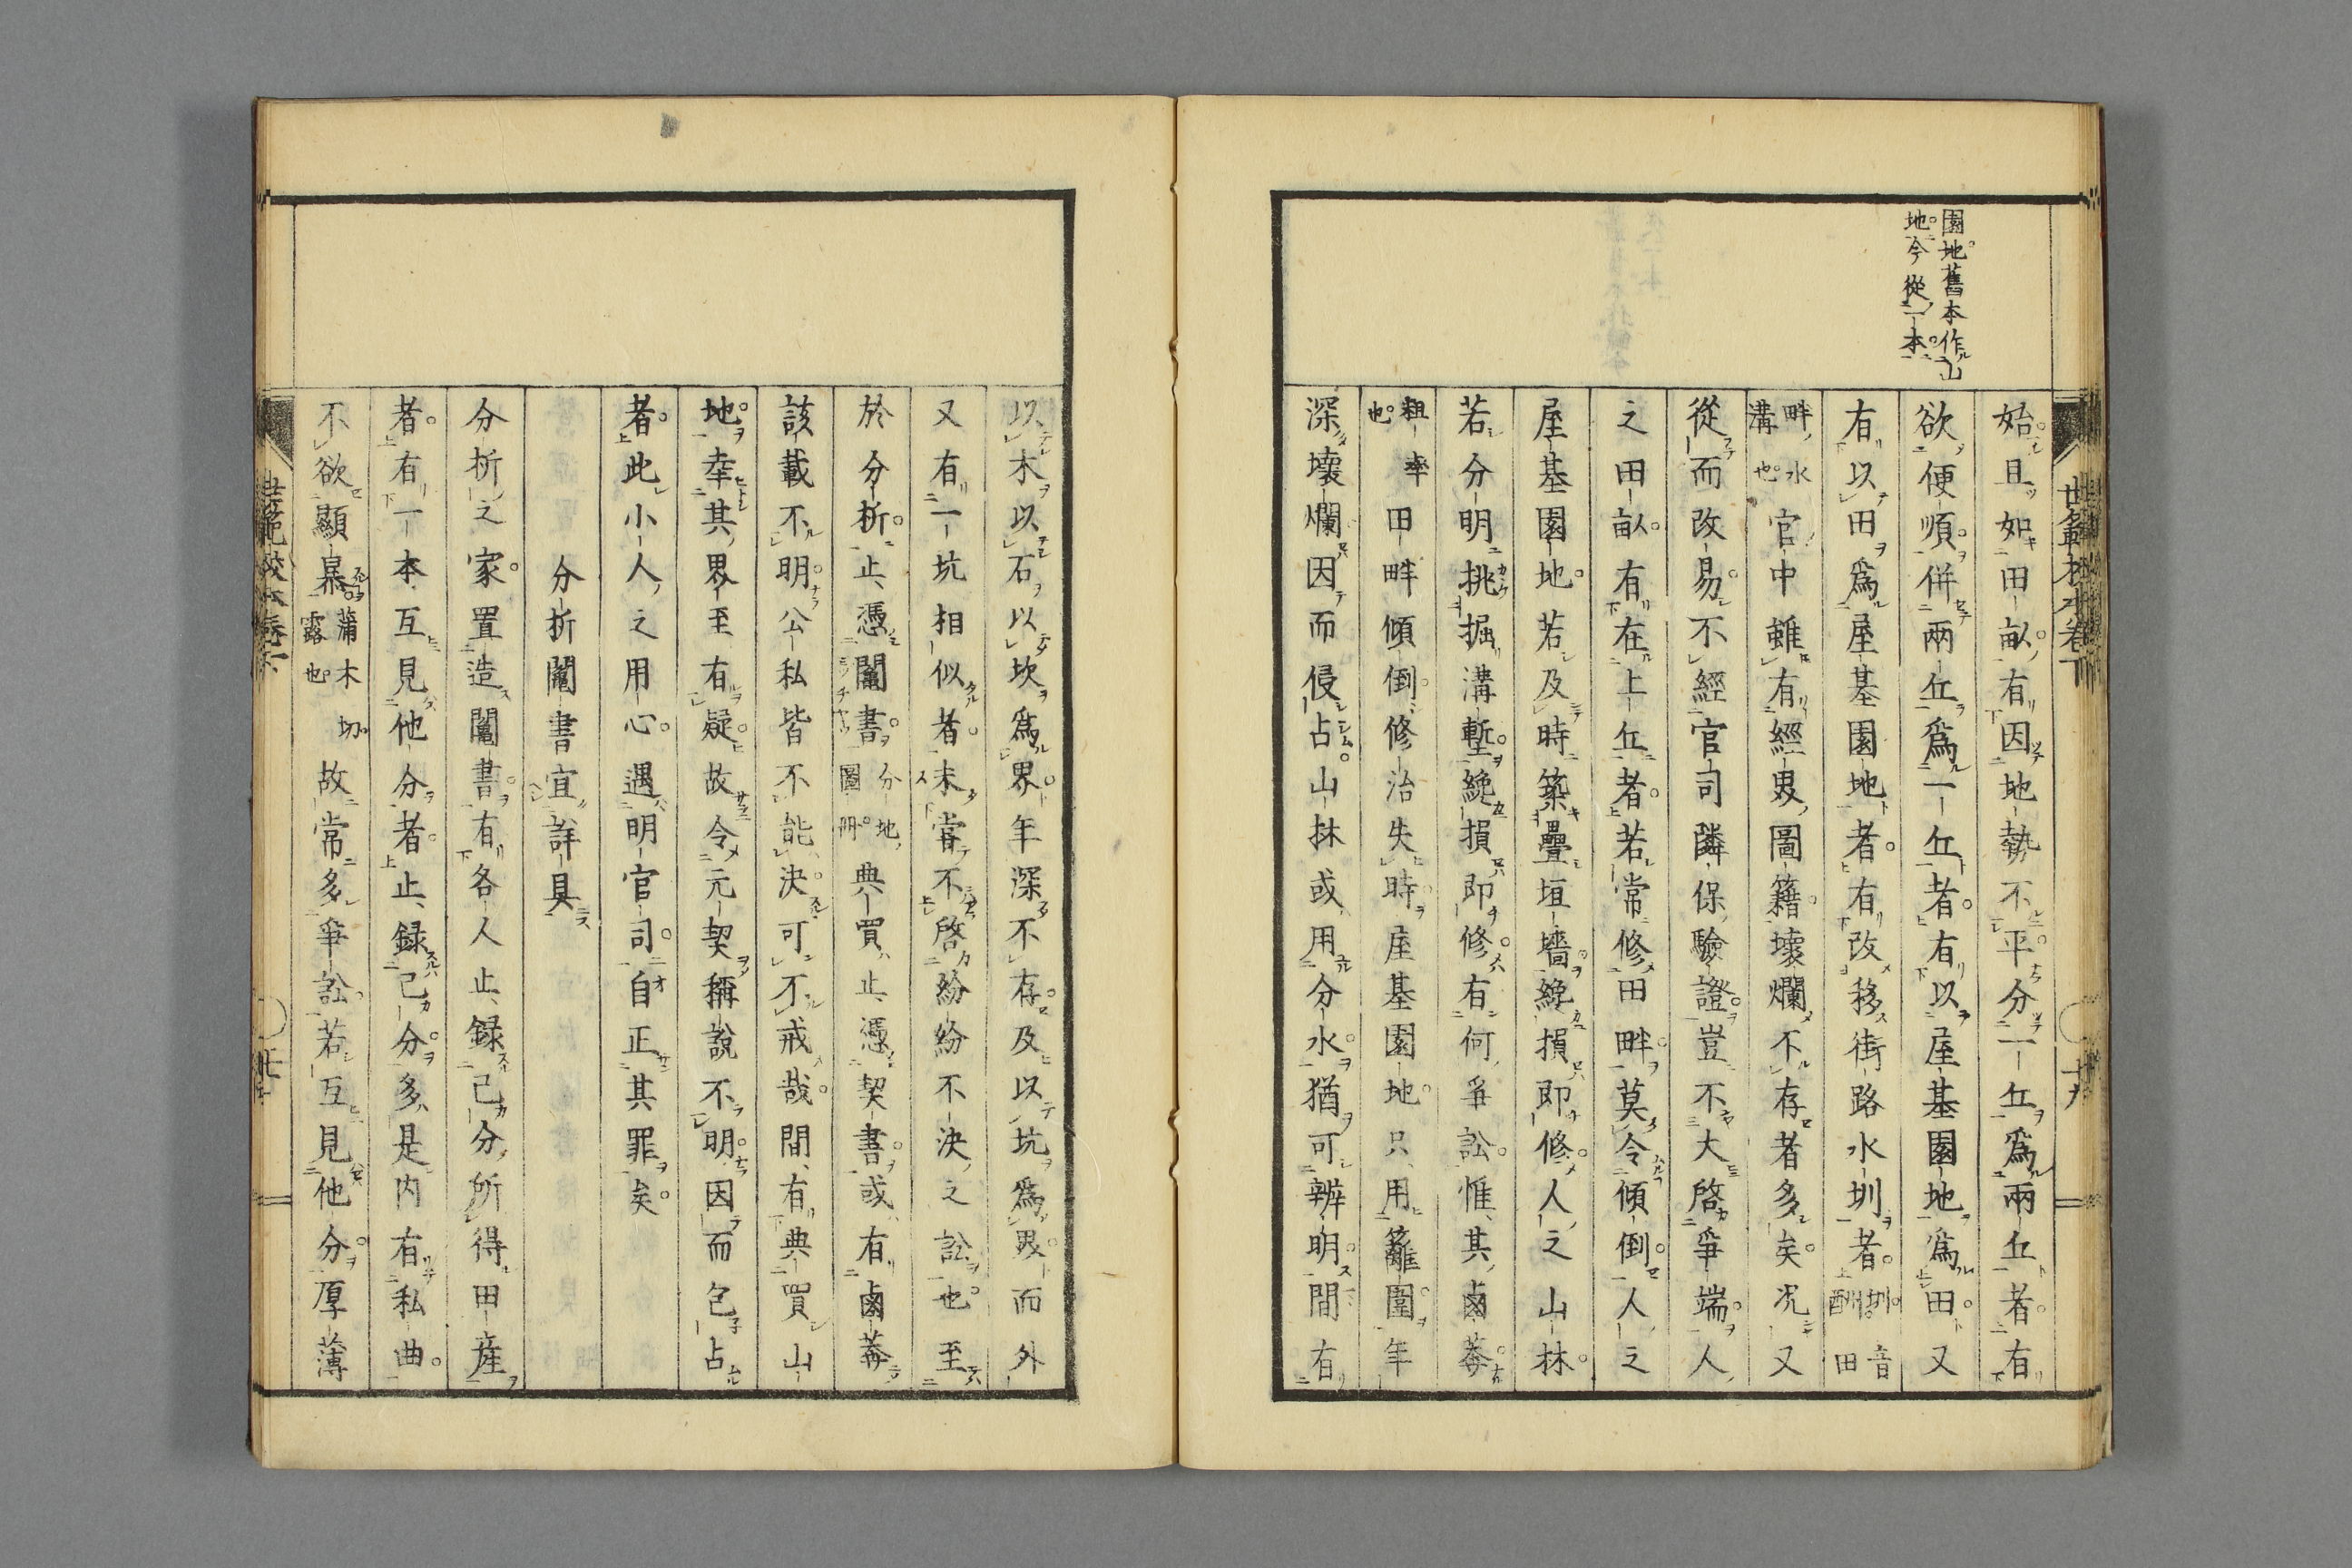 園地舊本作山
地今從一本
始且如田畝有因地勢不平分一丘爲兩丘者有
欲便順併兩丘爲一丘者有以屋基園地爲田又
有以田爲屋基園地者有改移街路水圳者圳音酬田
畔水溝也官中雖有經界圖籍壞爛不存者多矣況又
從而改易不經官司隣保驗證豈不大啓爭端人
之田畝有在上丘者若常修田畔莫令傾倒人之
屋基園地若及時築疊垣墻纔損即修人之山林
若分明挑掘溝塹纔損即修有何爭訟惟其鹵莽
粗率也田畔傾倒修治失時屋基園地只用籬圍年
深壞爛因而侵占山林或用分水猶可辨明間有
世範校本卷下
十九
以木以石以坎爲界年深不存及以坑爲界而外
又有一坑相似者未嘗不啓紛紛不決之訟也至
於分析止憑鬮書分地圖冊典買止憑契書或有鹵莽
該載不明公私皆不能決可不戒哉間有典買山
地幸其界至有疑故令元契稱說不明因而包占
者此小人之用心遇明官司自正其罪矣
分析鬮書宜詳具
分析之家置造鬮書有各人止録己分所得田産
者有一本互見他分者止録己分多是内有私曲
不欲顯暴蒲木切露也故常多爭訟若互見他分厚薄